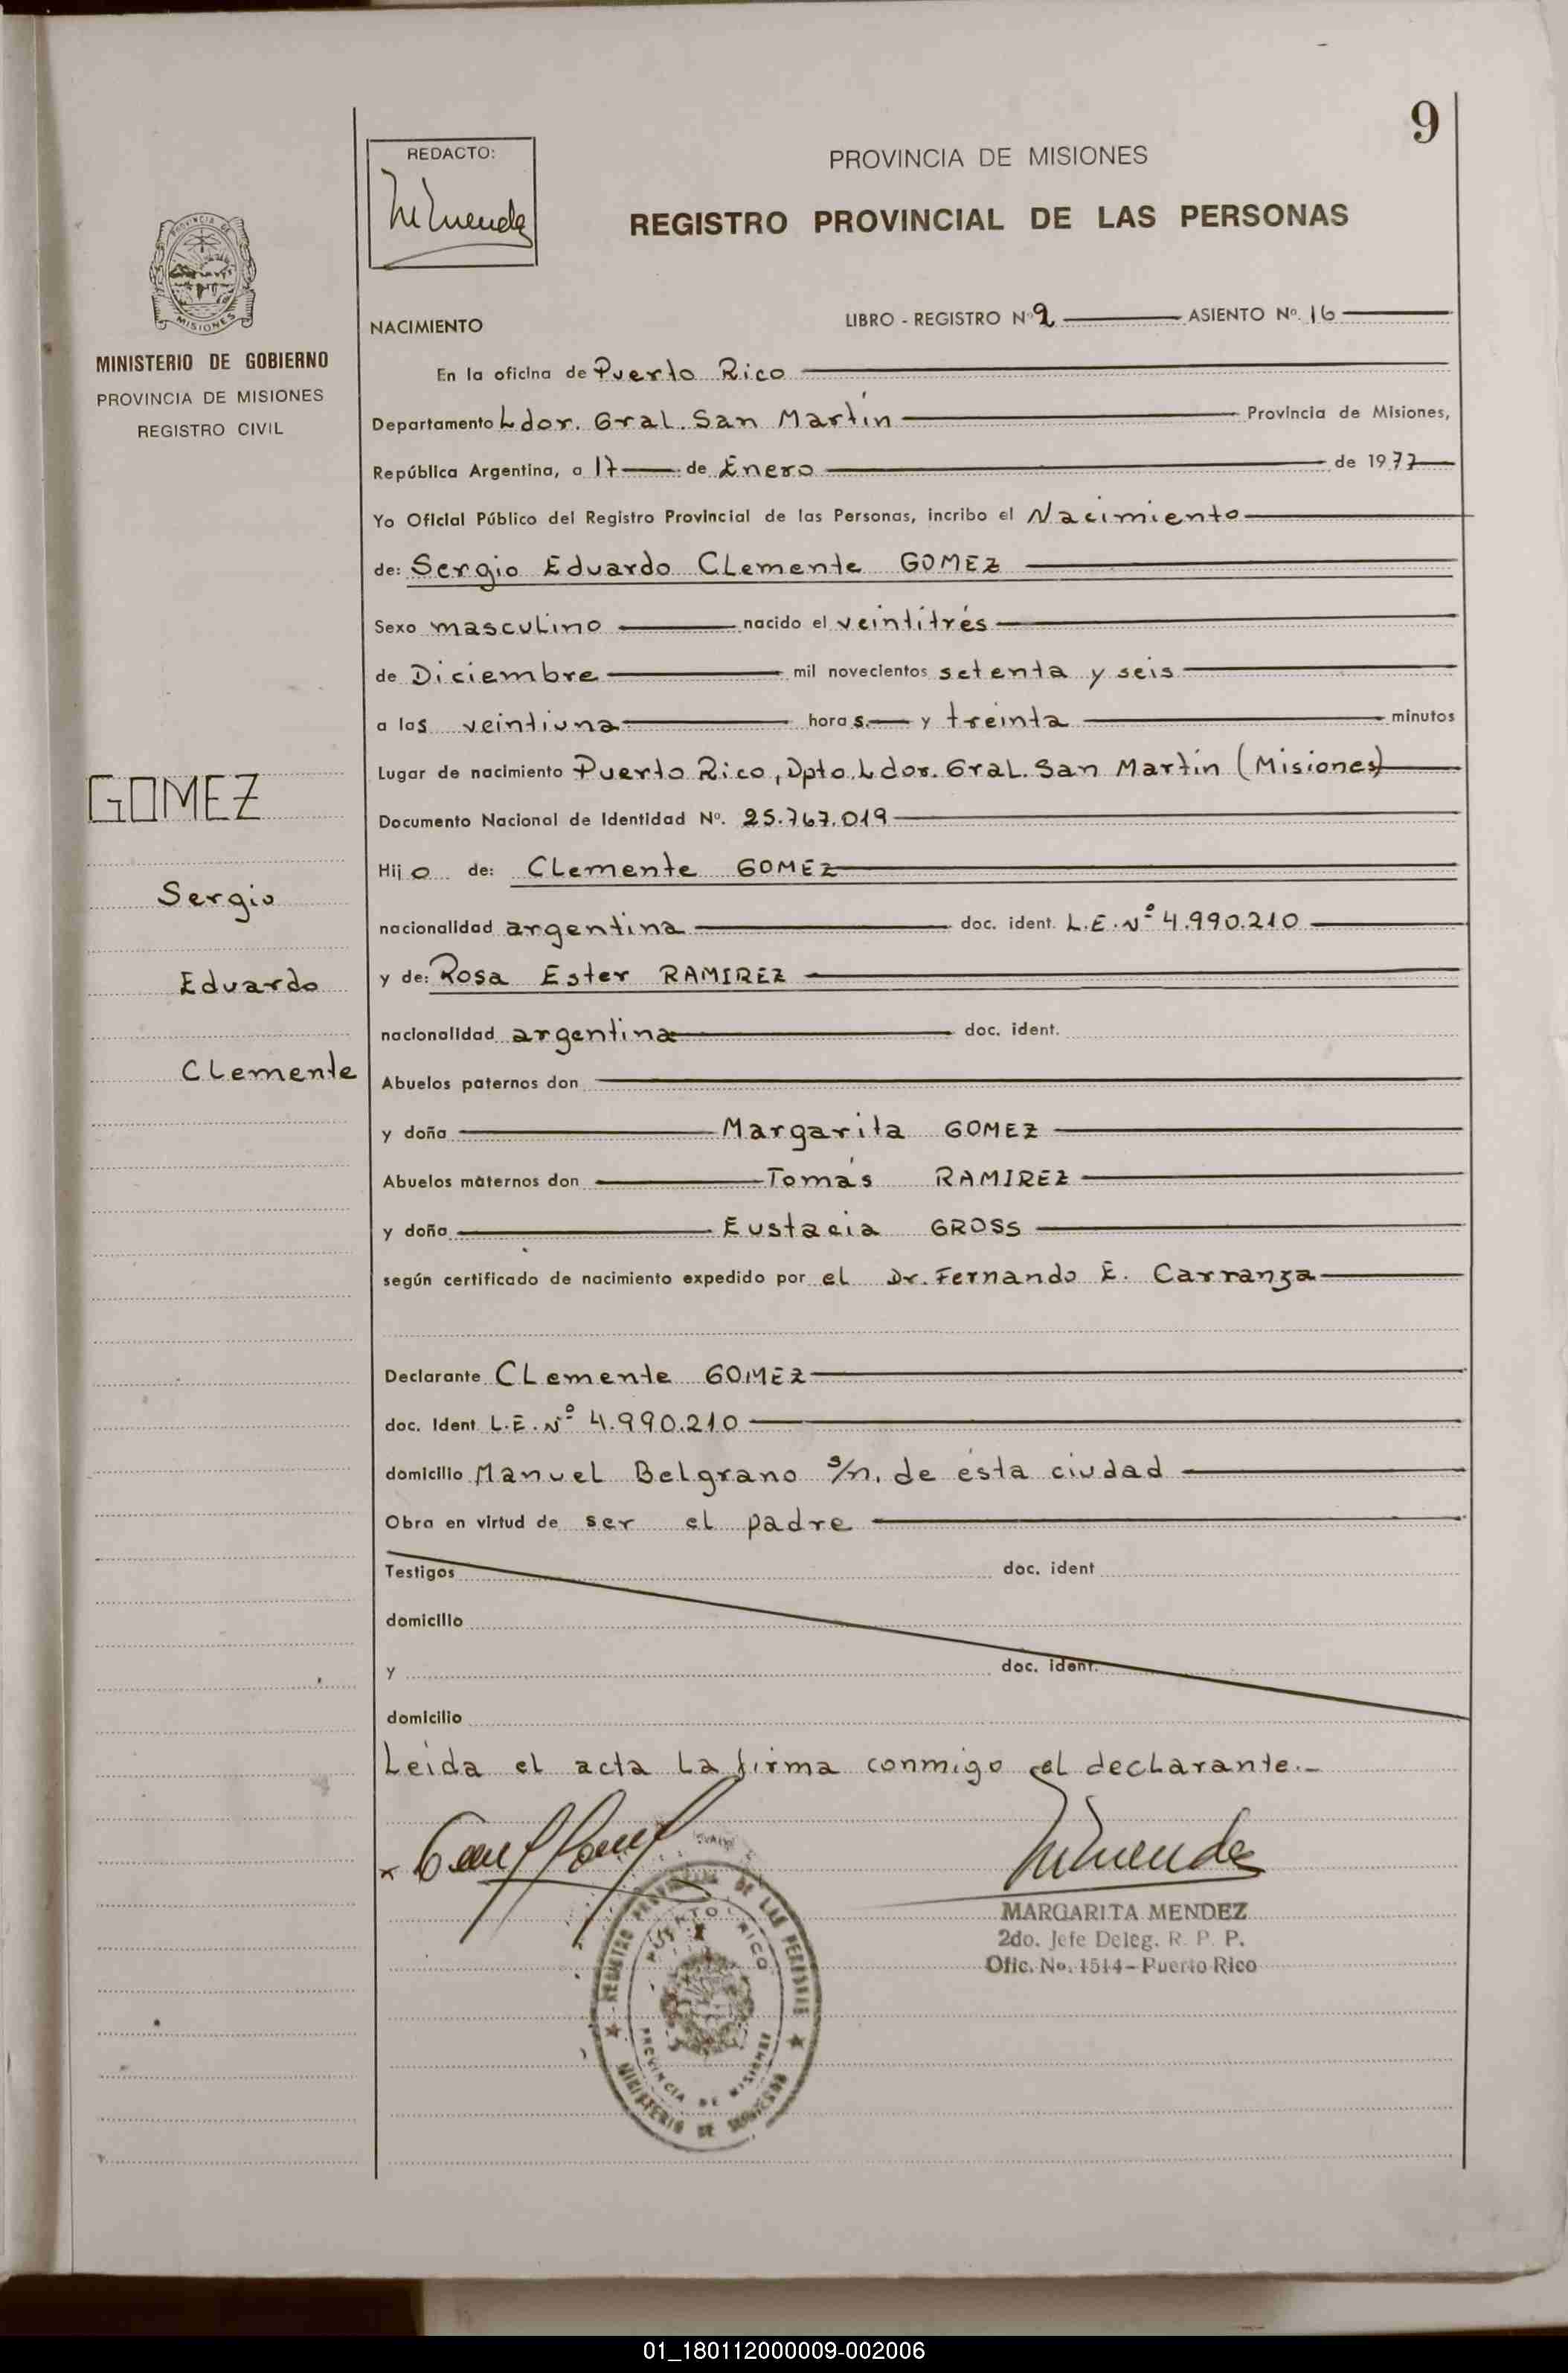 9
REDACTO:
PROVINCIA DE MISIONES
REGISTRO PROVINCIAL DE LAS PERSONAS
MISIONES
MINISTERIO DE GOBIERNO
PROVINCIA DE MISIONES
REGISTRO CIVIL
GOMEZ
Sergio
Eduardo
Clemente
NACIMIENTO
LIBRO - REGISTRO Nº 2 ASIENTO Nº. 16
En la oficina de Puerto Rico
Departamento Ldor. Gral. San Martín Provincia de Misiones,
República Argentina, a 17 de Enero de 1977
Yo Oficial Público del Registro Provincial de las Personas, incribo el Nacimiento
de: Sergio Eduardo Clemente GOMEZ
Sexo masculino nacido el veintitrés
de Diciembre mil novecientos setenta y seis
a las veintiuna horas. y treinta minutos
Lugar de nacimiento Puerto Rico, Dpto. Ldor. Gral. San Martín (Misiones)
Documento Nacional de Identidad Nº. 25.767.019
Hijo de: Clemente GOMEZ
nacionalidad argentina doc. ident. L.E. Nº 4.990.210
y de: Rosa Ester RAMIREZ
nacionalidad argentina doc. ident.
Abuelos paternos don
y doña Margarita GOMEZ
Abuelos maternos don Tomás RAMIREZ
y doña Eustacia GROSS
según certificado de nacimiento expedido por el Dr. Fernando E. Carranza
Declarante Clemente GOMEZ
doc. Ident L.E. Nº 4.990.210
domicilio Manuel Belgrano s/n. de ésta ciudad
Obra en virtud de ser el padre
Testigos doc. ident
domicilio
y doc. ident.
domicilio
Leída el acta la firma conmigo el declarante.-
MARGARITA MENDEZ
2do. Jefe Deleg. R. P. P.
Ofic. No. 1514 - Puerto Rico
REGISTRO PROVINCIAL DE LAS PERSONAS
PUERTO RICO
PROVINCIA DE MISIONES
MINISTERIO DE GOBIERNO
01_180112000009-002006